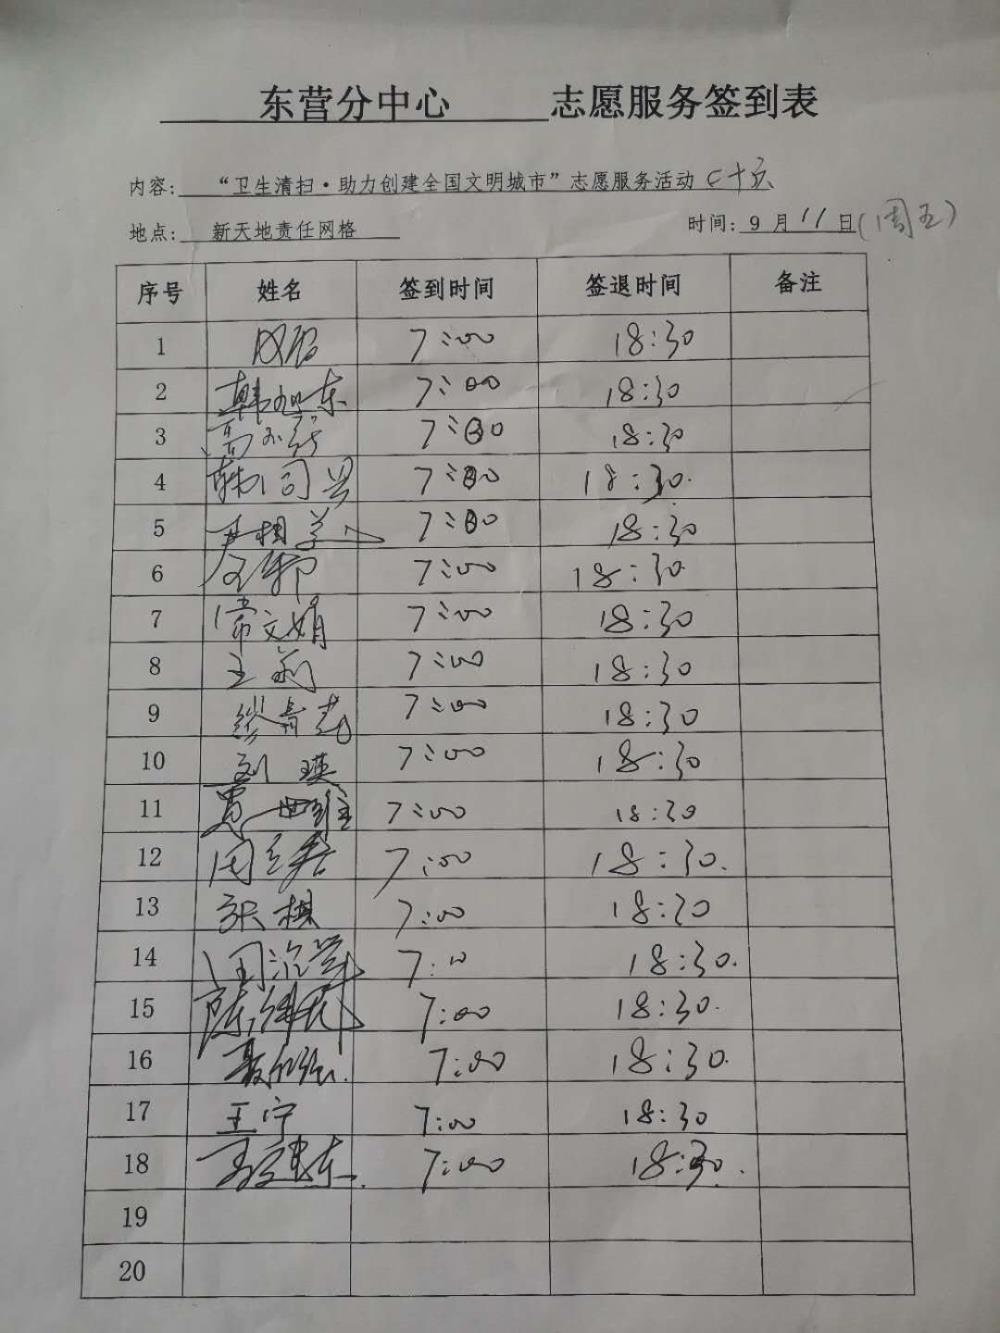 东营分中心 志愿服务签到表
内容: “卫生清扫·助力创建全国文明城市”志愿服务活动
地点: 新天地责任网格 时间: 9 月 11 日(周五)
序号 姓名 签到时间 签退时间 备注
1 7:00 18:30
2 韩旭东 7:00 18:30
3 7:00 18:30
4 7:00 18:30.
5 7:00 18:30
6 7:00 18:30
7 常文娟 7:00 18:30
8 王莉 7:00 18:30
9 7:00 18:30
10 刘瑛 7:00 18:30
11 7:00 18:30
12 7:00 18:30.
13 张棋 7:00 18:30
14 7:00 18:30.
15 7:00 18:30.
16 7:00 18:30.
17 王宁 7:00 18:30
18 7:00 18:30.
19
20